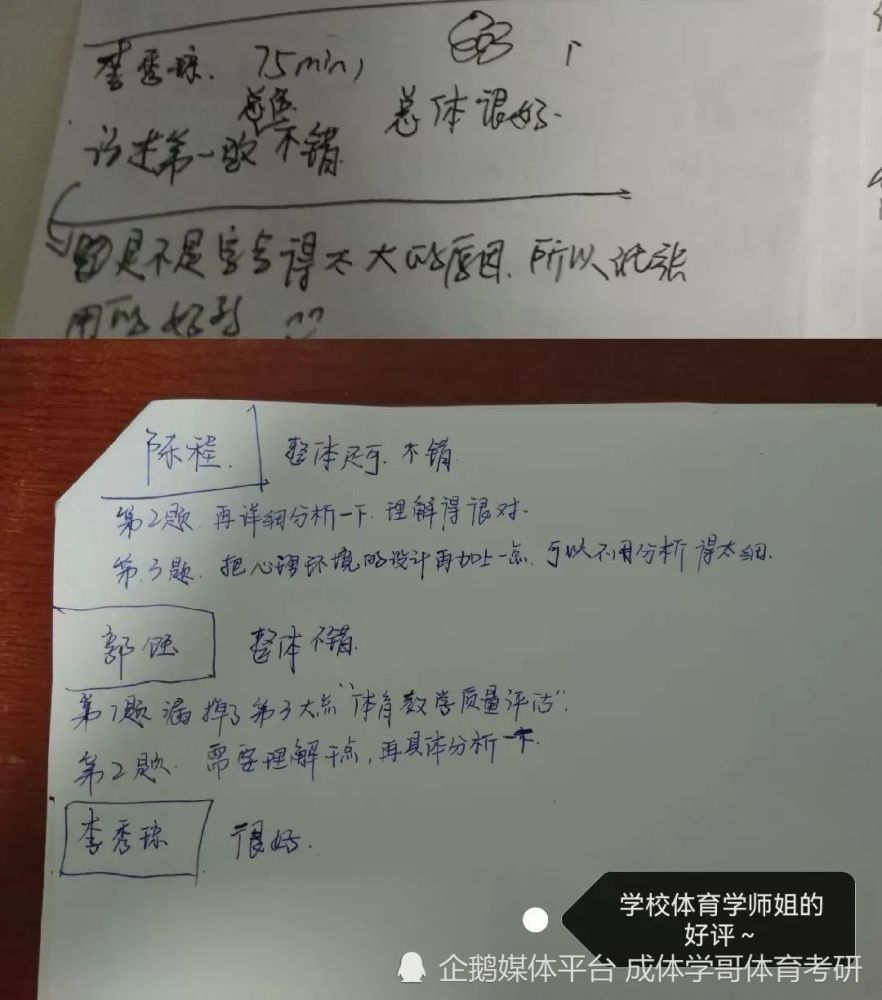 李秀琼. 75min,
总体很好.
不错.
是不是字写得太大的原因, 所以纸张
用的
陈程. 整体还可. 不错.
第2题. 再详细分析一下. 理解得很对.
第3题. 把心理环境的设计再加上一点, 可以不用分析得太细.
郭强 整体不错.
第1题 漏掉了第3大点"体育教学质量评估".
第2题. 需要理解干点, 再具体分析一下.
李秀琼 很好.
学校体育学师姐的
好评~
企鹅媒体平台 成体学哥体育考研